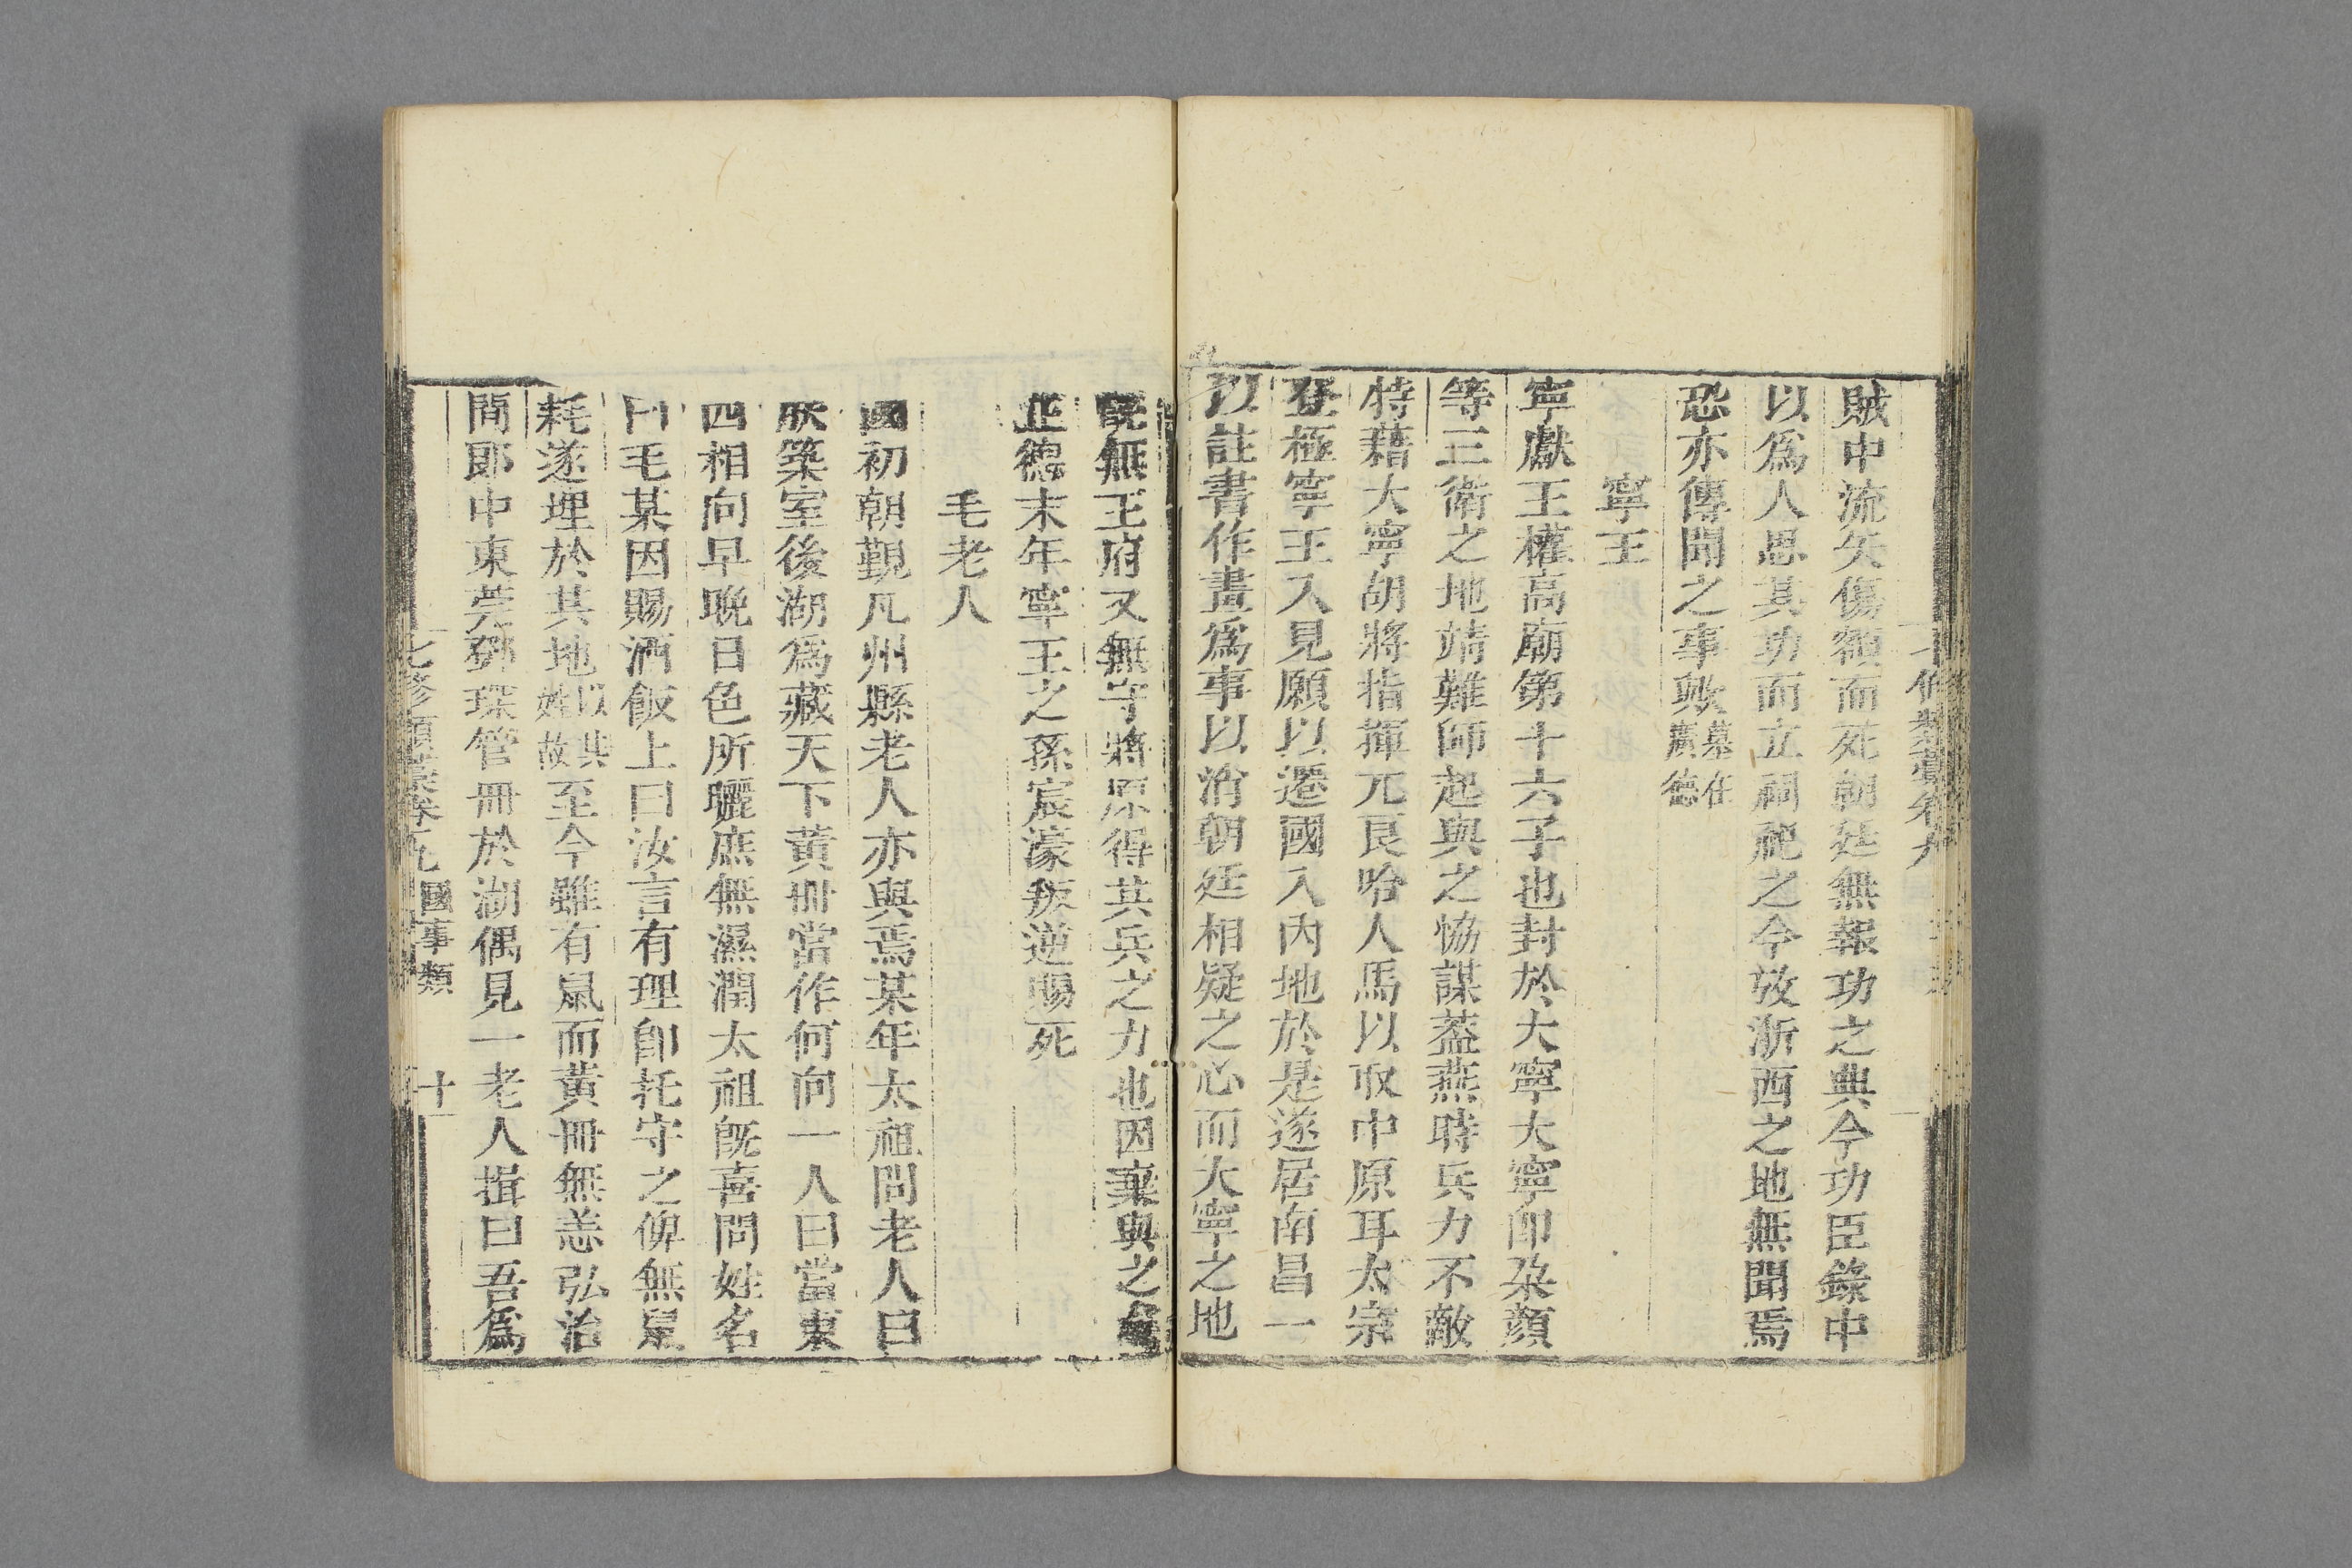 七修類藁卷九
賊中流矢傷額而死朝廷無報功之典今功臣錄中
以爲人思其功而立祠祀之今攷浙西之地無聞焉
恐亦傳聞之事歟墓在廣德
寧王
寧獻王權高廟第十六子也封於大寧大寧卽朶顏
等三衛之地靖難師起與之恊謀葢燕時兵力不敵
特藉大寧胡將指揮兀良哈人馬以取中原耳太宗
登極寧王入見願以遷國入內地於是遂居南昌一
以註書作畫爲事以消朝廷相疑之心而大寧之地
旣無王府又無守將原得其兵之力也因棄與之
正德末年寧王之孫宸濠叛逆賜死
毛老人
國初朝覲凡州縣老人亦與焉某年太祖問老人曰
朕築室後湖爲藏天下黃冊當作何向一人曰當東
四相向早晚日色所曬庶無濕潤太祖旣喜問姓名
曰毛某因賜酒飯上曰汝言有理卽托守之俾無鼠
耗遂埋於其地以其姓故至今雖有鼠而黃冊無恙弘治
間郞中東莞鄧琛管冊於湖偶見一老人揖曰吾爲
七修類藁卷九 國事類 十